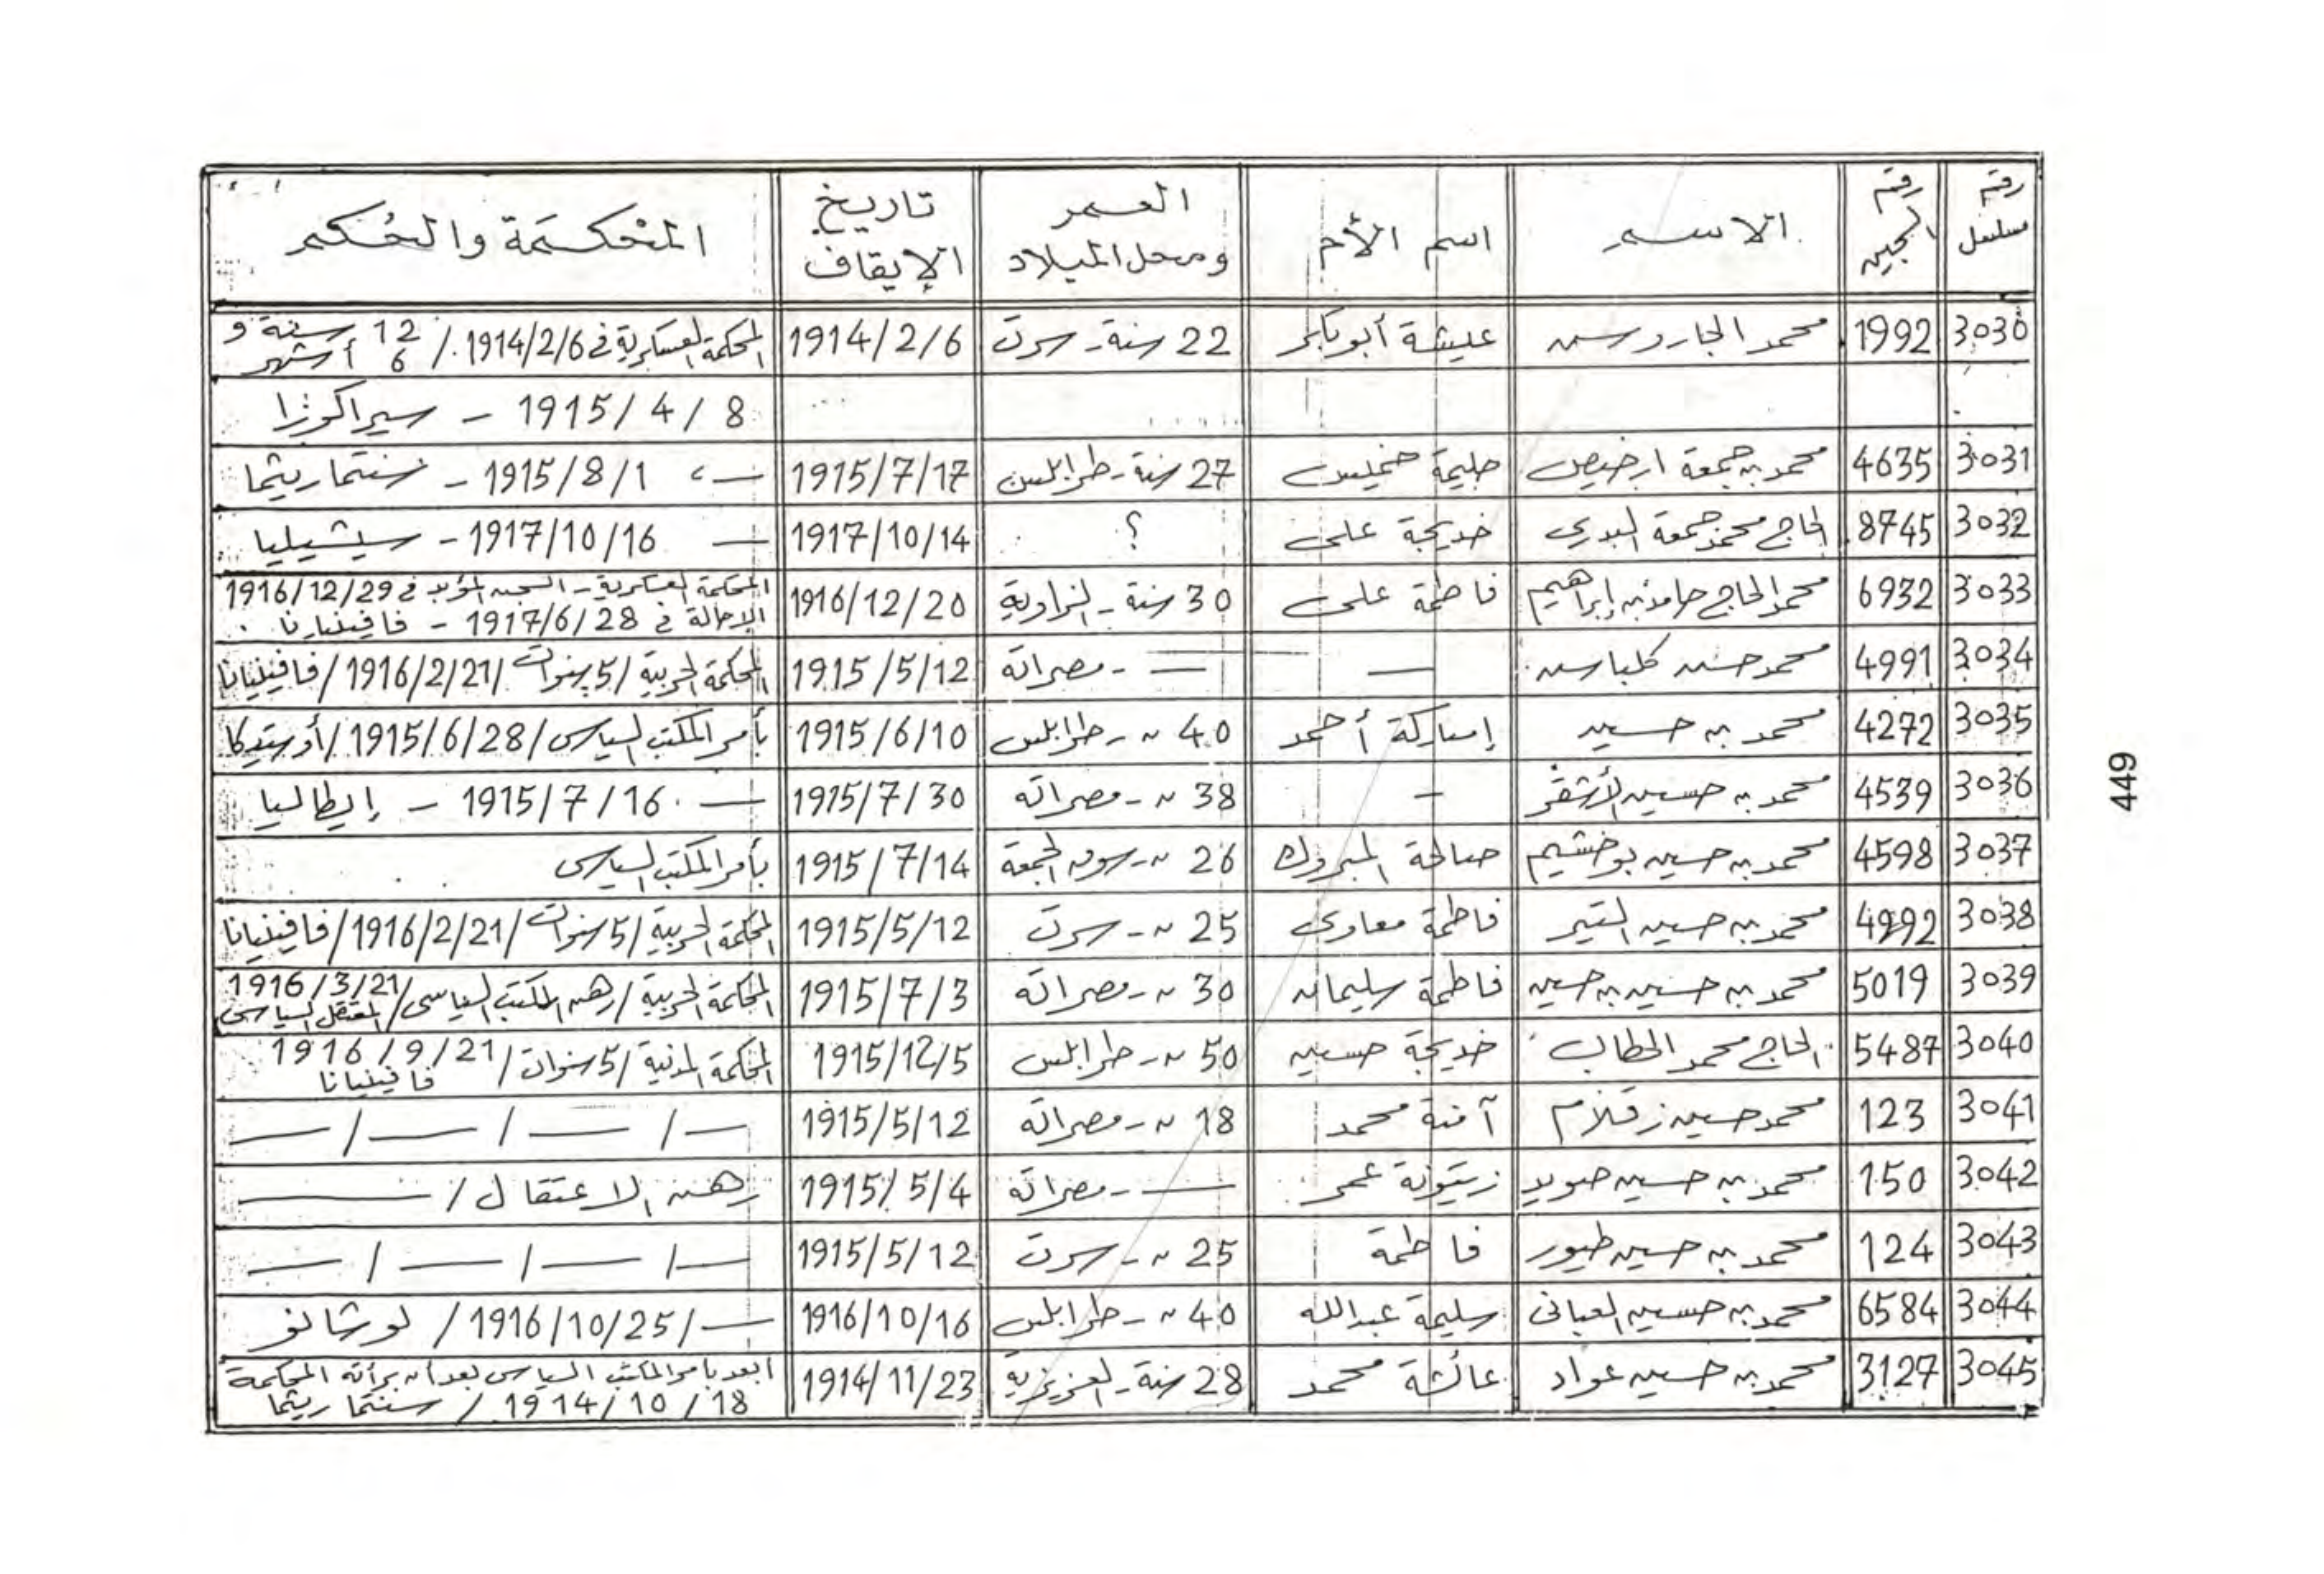 رقم مسلسل رقم السجين الاسم اسم الأم العمر ومحل الميلاد تاريخ الإيقاف المحكمة والحكم
3030 1992 محمد الجاروسى عيشة أبوبكر 22 سنة - سرت 1914/2/6 المحكمة العسكرية في 1914/2/6 / 12 سنة و 6 أشهر
8 / 4 / 1915 - سيراكوزا
3031 4635 محمد بن جمعة ارخيص حليمة خميس 27 سنة - طرابلس 1915/7/17 — ، 1915/8/1 - سنتماريثما
3032 8745 الحاج محمد جمعة البدرى خديجة على ؟ 1917/10/14 — 1917/10/16 - سيشيليا
3033 6932 محمد الحاج حامد بن إبراهيم فاطمة على 30 سنة - الزاوية 1916/12/20 المحكمة العسكرية - السجن المؤبد في 1916/12/29
الإحالة في 1917/6/28 - فافينيانا
3034 4991 محمد حسن كلباسى — — - مصراته 1915/5/12 المحكمة الحربية / 5 سنوات / 1916/2/21 / فافينيانا
3035 4272 محمد بن حسين إمباركة أحمد 40 " - طرابلس 1915/6/10 بأمر المكتب السياسى / 1915/6/28 / أوستيكا
3036 4539 محمد بن حسين الأشقر - 38 " - مصراته 1915/7/30 — 1915/7/16 - إيطاليا
3037 4598 محمد بن حسين بوخشيم صالحة المبروك 26 " - سوق الجمعة 1915/7/14 بأمر المكتب السياسى
3038 4992 محمد بن حسين التير فاطمة معاوى 25 " - سرت 1915/5/12 المحكمة الحربية / 5 سنوات / 1916/2/21 / فافينيانا
3039 5019 محمد بن حسين بن حسين فاطمة سليمان 30 " - مصراته 1915/7/3 المحكمة الحربية / رهن المكتب السياسى / 1916/3/21 / المعتقل السياسى
3040 5487 الحاج محمد الحطاب خديجة حسين 50 " - طرابلس 1915/12/5 المحكمة المدنية / 5 سنوات / 1916/9/21
فافينيانا
3041 123 محمد حسين زقلام آمنة محمد 18 " - مصراته 1915/5/12 — / — / — / —
3042 150 محمد بن حسين صويد زيتونة عمر — - مصراته 1915/5/4 رهن الاعتقال / —
3043 124 محمد بن حسين طيور فاطمة 25 " - سرت 1915/5/12 — / — / — / —
3044 6584 محمد بن حسين العبانى سليمة عبدالله 40 " - طرابلس 1916/10/16 — / 1916/10/25 / لوشانو
3045 3127 محمد بن حسين عواد عائشة محمد 28 سنة - العزيزية 1914/11/23 أبعد بأمر المكتب السياسى بعد أن برأته المحكمة
18 / 10 / 1914 / سنتماريثما
449